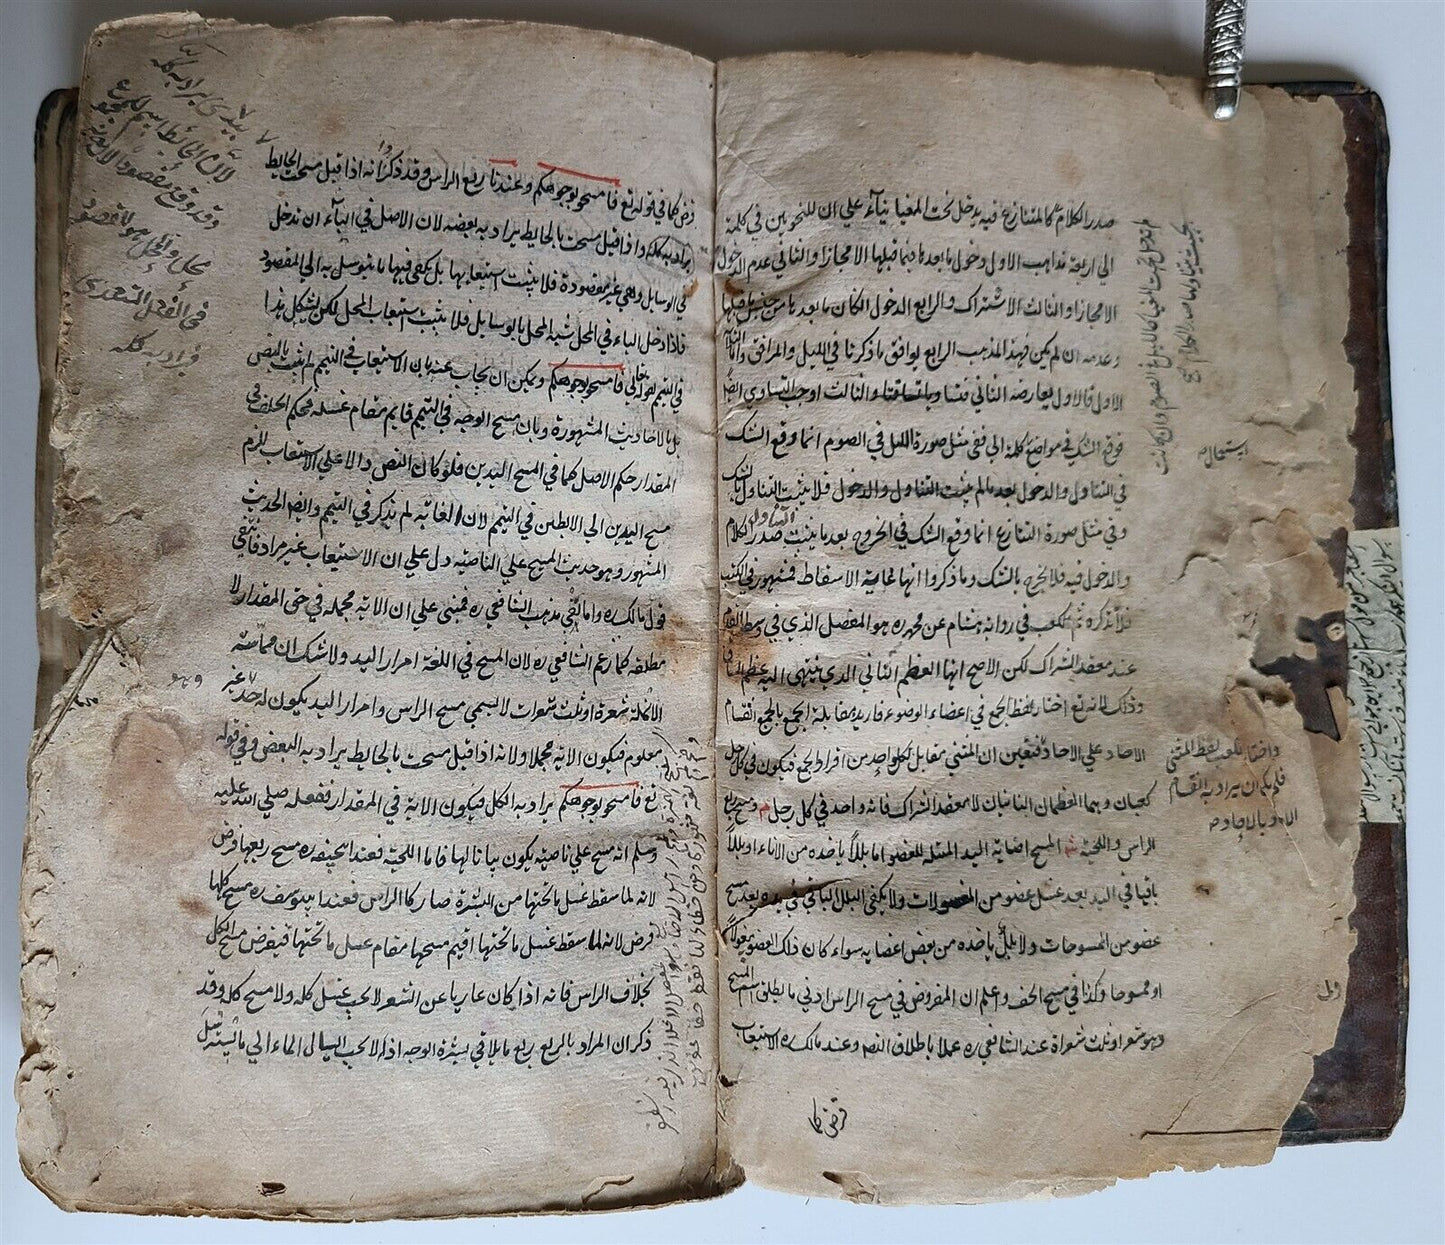 صدر الكلام كالمتنازع فيه يدخل تحت المغيا بناء على ان للنحويين في كلمة
الى اربعة مذاهب الاول دخول ما بعدها فيما قبلها الا مجازا والثاني عدم الدخول
الا مجازا والثالث الاشتراك والرابع الدخول ان كان ما بعدها من جنس ما قبلها
وعدمه ان لم يكن فهذا المذهب الرابع يوافق ما ذكرنا في الليل والمرافق واما الثلثة
الاول فالاول يعارضه الثاني فتساويا تساقطا والثالث اوجب التساوي ايضا
فوقع الشك في مواضع كلمة الى ففي مثل صورة الليل في الصوم انما وقع الشك
في التناول والدخول بعد ما لم يثبت التناول والدخول فلا يثبت التناول بالشك
وفي مثل صورة التنازع انما وقع الشك في الخروج بعد ما يثبت صدر الكلام
والدخول فيه فلا يخرج بالشك وما ذكروا انها لغاية الاسقاط فمشهور في الكتب
فلا نذكره ثم الكعب في رواية هشام عن محمد ره هو المفصل الذي في وسط القدم
عند معقد الشراك لكن الاصح انها العظم الناتي الذي ينتهي اليه عظم الساق
وذلك لانه تع اختار لفظ الجمع في اعضاء الوضوء فاريد بمقابلة الجمع بالجمع انقسام
الاحاد على الاحاد فتعين ان المثنى مقابل لكل واحد من افراد الجمع فيكون في كل رجل
كعبان وهما العظمان الناتيان لا معقد الشراك فانه واحد في كل رجل م ومسح ربع
الراس واللحية ش المسح اصابة اليد المبتلة للعضو اما بللا ياخذه من الاناء او بللا
باقيا في اليد بعد غسل عضو من المغسولات ولا يكفي البلل الباقي في يده بعد مسح
عضو من الممسوحات ولا بلل ياخذه من بعض اعضايه سواء كان ذلك العضو مغسولا
او ممسوحا وكذا في مسح الخف واعلم ان المفروض في مسح الراس ادنى ما يطلق اسم المسح
وهو شعر او ثلث شعراة عند الشافعي ره عملا باطلاق النص وعند مالك ره الاستيعاب
فرض كما
استعمال
واختار في الكعب لفظ المثنى
فلم يمكن ان يراد به انقسام
الاحاد بالاحاد
فرض كما في قوله تع فامسحوا بوجوهكم وعندنا ربع الراس وقد ذكروا انه اذا قيل مسحت الحايط
يراد به كله واذا قيل مسحت بالحايط يراد به بعضه لان الاصل في الباء ان تدخل
في الوسايل وهي غير مقصودة فلا يثبت استيعابها بل يكفي فيها ما يتوسل به الى المقصود
فاذا دخل الباء في المحل شبه المحل بالوسايل فلا يثبت استيعاب المحل لكن يشكل هذا
في التيمم لقوله تعالى فامسحوا بوجوهكم ويمكن ان يجاب عنه بان الاستيعاب في التيمم لم يثبت بالنص
بل بالاحاديث المشهورة وبان مسح الوجه في التيمم قايم مقام غسله فحكم الخلف في
المقدار حكم الاصل كما في المسح اليدين فلو كان النص دالا على الاستيعاب للزم
مسح اليدين الى الابطين في التيمم لان الغاية لم تذكر في التيمم وايضا الحديث
المشهور وهو حديث المسح على الناصية دل على ان الاستيعاب غير مراد فانتفى
قول مالك ره واما نفي مذهب الشافعي ره فمبني على ان الاية مجملة في حق المقدار لا
مطلقة كما زعم الشافعي ره لان المسح في اللغة امرار اليد ولا شك ان مماسة
الانملة شعرة او ثلث شعرات لا يسمى مسح الراس وامرار اليد يكون له حد غير
معلوم فيكون الاية مجملا ولانه اذا قيل مسحت بالحايط يراد به البعض وفي قوله
تع فامسحوا بوجوهكم يراد به الكل فيكون الاية في المقدار ففعله صلى الله عليه
وسلم انه مسح على ناصيته يكون بيانا لها فاما اللحية فعند ابيحنيفه ره مسح ربعها فرض
لانه لما سقط غسل ما تحتها من البشرة صار كالراس فعند ابيوسف ره مسح كلها
فرض لانه لما سقط غسل ما تحتها اقيم مسحها مقام غسل ما تحتها فيفرض مسح الكل
بخلاف الراس فانه اذا كان عاريا عن الشعر لا يجب غسل كله ولا مسح كله وقد
ذكر ان المراد بالربع ربع ما يلاقي بشرة الوجه اذ لا يجب ايصال الماء الى ما استرسل
لان الحائط اسم للمجموع
وقد وقع مقصودا لانه
محل والمحل هو المقصود
في الفعل المتعدي
فيراد به كله